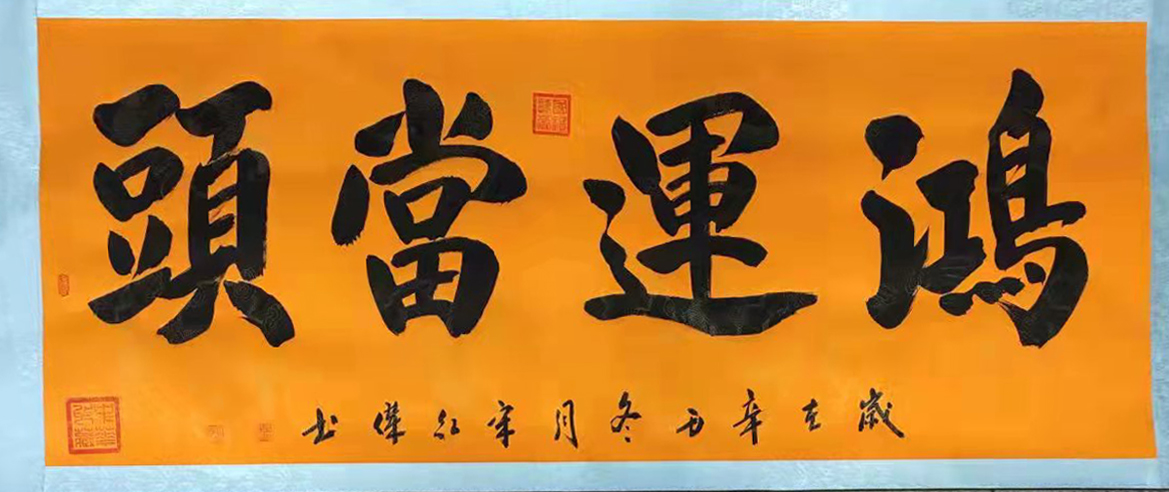 鴻運當頭
歲在辛丑冬月宋紅傑书